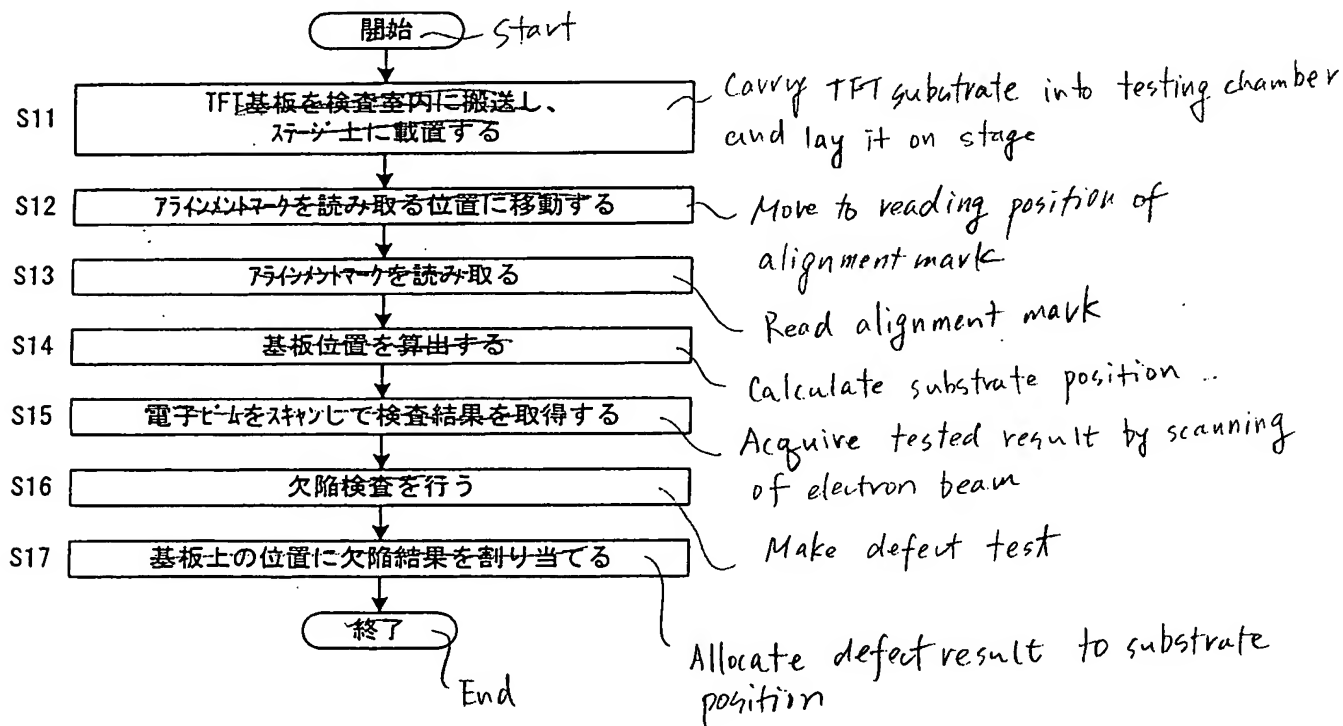 開始
Start
S11
TFT基板を検査室内に搬送し、
ステージ上に載置する
Carry TFT substrate into testing chamber
and lay it on stage
S12
アラインメントマークを読み取る位置に移動する
Move to reading position of
alignment mark
S13
アラインメントマークを読み取る
Read alignment mark
S14
基板位置を算出する
Calculate substrate position ..
S15
電子ビームをスキャンして検査結果を取得する
Acquire tested result by scanning
of electron beam
S16
欠陥検査を行う
Make defect test
S17
基板上の位置に欠陥結果を割り当てる
Allocate defect result to substrate
position
終了
End